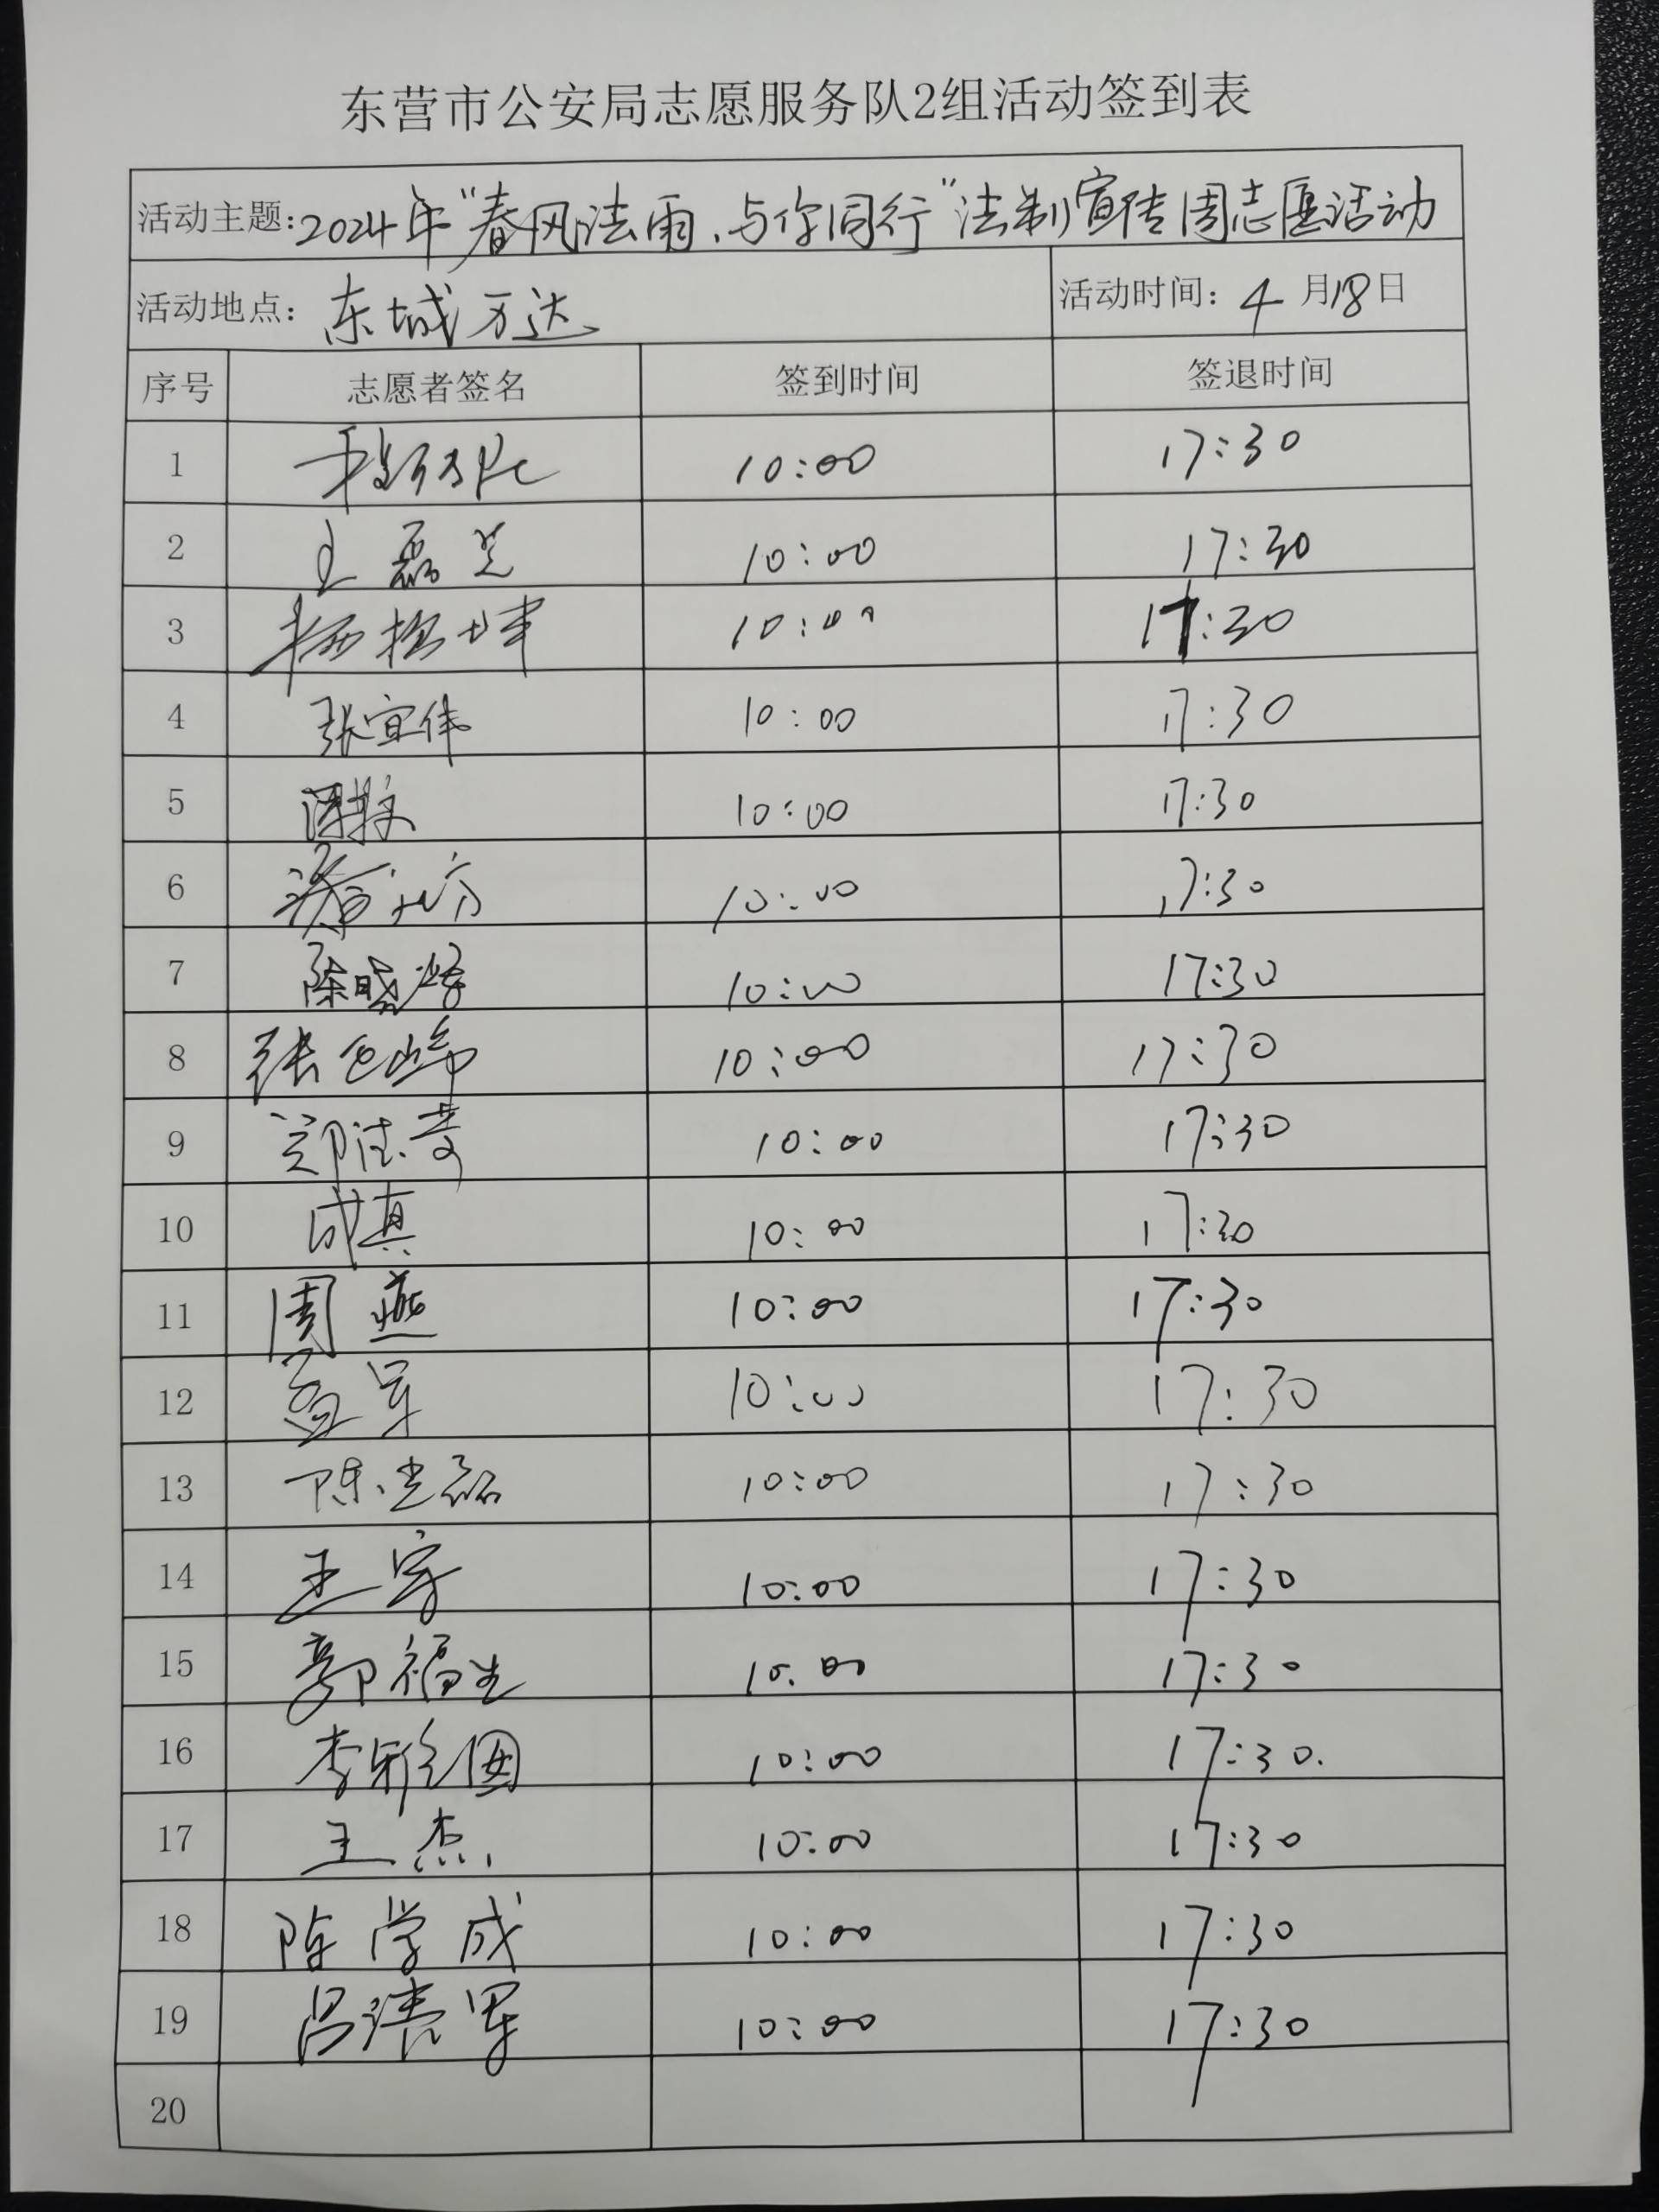 东营市公安局志愿服务队2组活动签到表
活动主题:2024年“春风法雨、与你同行”法制宣传周志愿活动
活动地点: 东城万达 活动时间: 4月18日
序号 志愿者签名 签到时间 签退时间
1 10:00 17:30
2 王磊 10:00 17:30
3 10:00 17:30
4 张宜伟 10:00 17:30
5 10:00 17:30
6 10:00 17:30
7 陈晓峰 10:00 17:30
8 张 峰 10:00 17:30
9 郑 10:00 17:30
10 成真 10:00 17:30
11 周燕 10:00 17:30
12 军 10:00 17:30
13 陈 磊 10:00 17:30
14 王宇 10:00 17:30
15 郭福生 10:00 17:30
16 李彩 10:00 17:30.
17 王杰 10:00 17:30
18 陈学成 10:00 17:30
19 吕清军 10:00 17:30
20